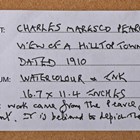 CHARLES MARESCO PEARCE
VIEW OF A HILLTOP TOWN
DATED 1910
WATERCOLOUR & INK
16.7 X 11.4 INCHES
work came from the Pearce
It is believed to depict